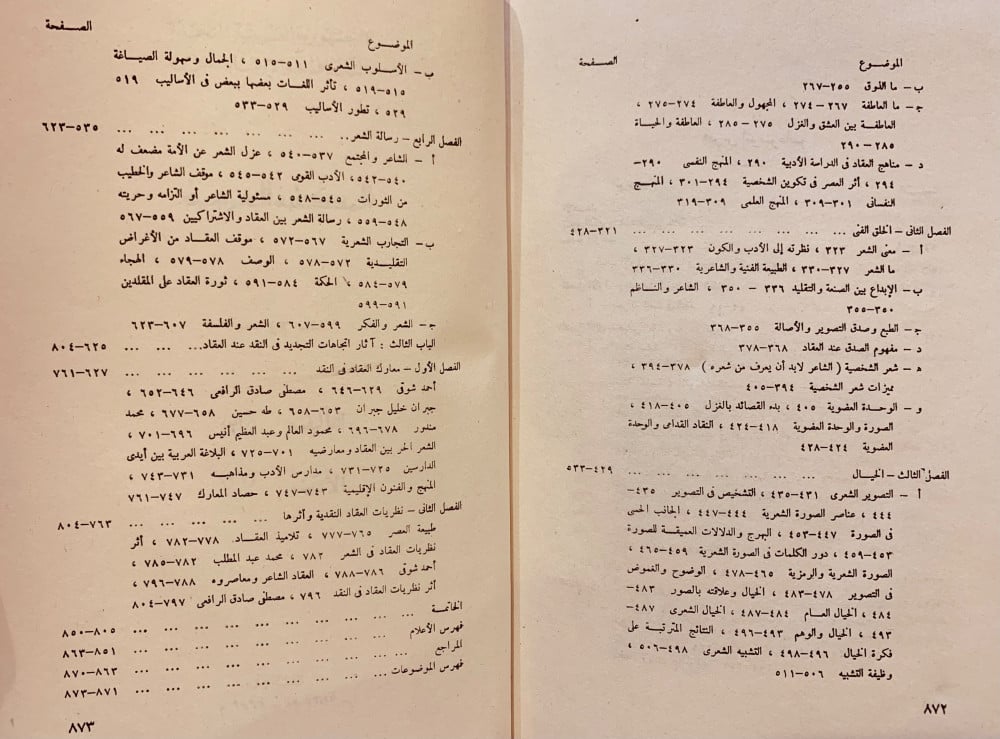 الموضوع الصفحة
ب – ما الذوق ٢٥٥–٢٦٧
ج – ما العاطفة ٢٦٧ – ٢٧٤ ، المجهول والعاطفة ٢٧٤–٢٧٥ ،
العاطفة بين العشق والغزل ٢٧٥ – ٢٨٥ ، العاطفة والحياة
٢٨٥–٢٩٠
د – مناهج العقاد فى الدراسة الأدبية ٢٩٠ ، المنهج النفسى ٢٩٠–
٢٩٤ ، أثر العصر فى تكوين الشخصية ٢٩٤–٣٠١ ، المنهج
النفسانى ٣٠١–٣٠٩ ، المنهج العلمى ٣٠٩–٣١٩
الفصل الثانى – الخلق الفنى ... ... ... ... ... ... ٣٢١–٤٢٨
أ – معنى الشعر ٣٢٣ ، نظرته إلى الأدب والكون ٣٢٣–٣٢٧ ،
ما الشعر ٣٢٧–٣٣٠ ، الطبيعة الفنية والشاعرية ٣٣٠–٣٣٦
ب – الإبداع بين الصنعة والتقليد ٣٣٦ – ٣٥٠ ، الشاعر والنــاظم
٣٥٠–٣٥٥
ج – الطبع وصدق التصوير والأصالة ٣٥٥–٣٦٨
د – مفهوم الصدق عند العقاد ٣٦٨–٣٧٨
ه – شعر الشخصية ( الشاعر لابد أن يعرف من شعره ) ٣٧٨–٣٩٤ ،
مميزات شعر الشخصية ٣٩٤–٤٠٥
و – الوحدة العضوية ٤٠٥ ، بدء القصائد بالغزل ٤٠٥–٤١٨ ،
الصورة والوحدة العضوية ٤١٨–٤٢٤ ، النقاد القدامى والوحدة
العضوية ٤٢٤–٤٢٨
الفصل الثالث – الخيال ... ... ... ... ... ... ٤٢٩–٥٣٣
أ – التصوير الشعرى ٤٣١–٤٣٥ ، التشخيص فى التصوير ٤٣٥–
٤٤٤ ، عناصر الصورة الشعرية ٤٤٤–٤٤٧ ، الجانب الحسى
فى الصورة ٤٤٧–٤٥٣ ، البهرج والدلالات العميقة للصورة
٤٥٣–٤٥٩ ، دور الكلمات فى الصورة الشعرية ٤٥٩–٤٦٥ ،
الصورة الشعرية والرمزية ٤٦٥–٤٧٨ ، الوضوح والغموض
فى التصوير ٤٧٨–٤٨٣ ، الخيال وعلاقته بالصور ٤٨٣–
٤٨٤ ، الخيال العـام ٤٨٤–٤٨٧ ، الخيال الشعرى ٤٨٧–
٤٩٣ ، الخيال والوهم ٤٩٣–٤٩٦ ، النتائج المترتبة على
فكرة الخيال ٤٩٦–٤٩٨ ، التشبيه الشعرى ٤٩٨–٥٠٦ ،
وظيفة التشبيه ٥٠٦–٥١١
٨٧٢
الموضوع الصفحة
ب – الأسلوب الشعرى ٥١١–٥١٥ ، الجمال وسهولة الصياغة
٥١٥–٥١٩ ، تأثر اللغـات بعضها ببعض فى الأساليب ٥١٩
٥٢٩ ، تطور الأساليب ٥٢٩–٥٣٣
الفصل الرابع – رسالة الشعر.. ... ... ... ... ... ... ٥٣٥–٦٢٣
أ – الشاعر والمجتمع ٥٣٧–٥٤٠ ، عزل الشعر عن الأمة مضعف له
٥٤٠–٥٤٢ ، الأدب القومى ٥٤٢–٥٤٥ ، موقف الشاعر والخطيب
من الثورات ٥٤٥–٥٤٨ ، مسئولية الشاعر أو التزامه وحريته
٥٤٨–٥٥٩ ، رسالة الشعر بين العقاد والاشتراكيين ٥٥٩–٥٦٧
ب – التجارب الشعرية ٥٦٧–٥٧٢ ، موقف العقـاد من الأغراض
التقليـدية ٥٧٢–٥٧٨ ، الوصف ٥٧٨–٥٧٩ ، الهجاء
٥٧٩–٥٨٤ ، الحكمة ٥٨٤–٥٩١ ، ثورة العقاد على المقلدين
٥٩١–٥٩٩
ج – الشعر والفكر ٥٩٩–٦٠٧ ، الشعر والفلسفة ٦٠٧–٦٢٣
الباب الثالث : آثار اتجاهات التجديد فى النقد عند العقاد... ... ... ٦٢٥–٨٠٤
الفصل الأول – معارك العقاد فى النقد ... ... ... ... ... ٦٢٧–٧٦١
أحمد شوقى ٦٢٩–٦٤٦ ، مصطفى صادق الرافعى ٦٤٦–٦٥٢ ،
جبران خليل جبران ٦٥٣–٦٥٨ ، طه حسين ٦٥٨–٦٧٧ ، محمد
مندور ٦٧٨–٦٩٦ ، محمود العالم وعبد العظيم أنيس ٦٩٦–٧٠١ ،
الشعر الحر بين العقاد ومعارضيه ٧٠١–٧٢٥ ، البلاغة العربية بين أيدى
الدارسين ٧٢٥–٧٣١ ، مدارس الأدب ومذاهبـه ٧٣١–٧٤٣ ،
المنهج والفنون الإقليمية ٧٤٣–٧٤٧ ، حصاد المعارك ٧٤٧–٧٦١
الفصل الثانى – نظريات العقاد النقدية وأثرها ... ... ... ... ٧٦٣–٨٠٤
طبيعة العصر ٧٦٥–٧٧٧ ، تلاميذ العقـاد. ٧٧٨–٧٨٢ ، أثر
نظريات العقاد فى الشعر ٧٨٢ ، محمد عبد المطلب ٧٨٢–٧٨٥ ،
أحمد شوقى ٧٨٦–٧٨٨ ، العقاد الشاعر ومعاصروه ٧٨٨–٧٩٦ ،
أثر نظريات العقاد فى النقد ٧٩٦ ، مصطفى صادق الرافعى ٧٩٧–٨٠٤
الخاتمـة ... ... ... ... ... ... ... ... ٨٠٥–٨٥٠
فهرس الأعلام ... ... ... ... ... ... ... ... ٨٥١–٨٦٣
المراجع ... ... ... ... ... ... ... ... ٨٦٣–٨٧٠
فهرس الموضوعات ... ... ... ... ... ... ... ٨٧١–٨٧٣
٨٧٣